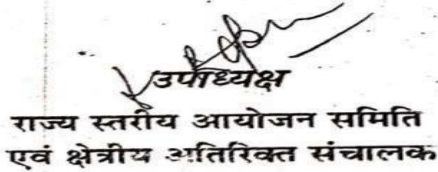 उपाध्यक्ष
राज्य स्तरीय आयोजन समिति
एवं क्षेत्रीय अतिरिक्त संचालक